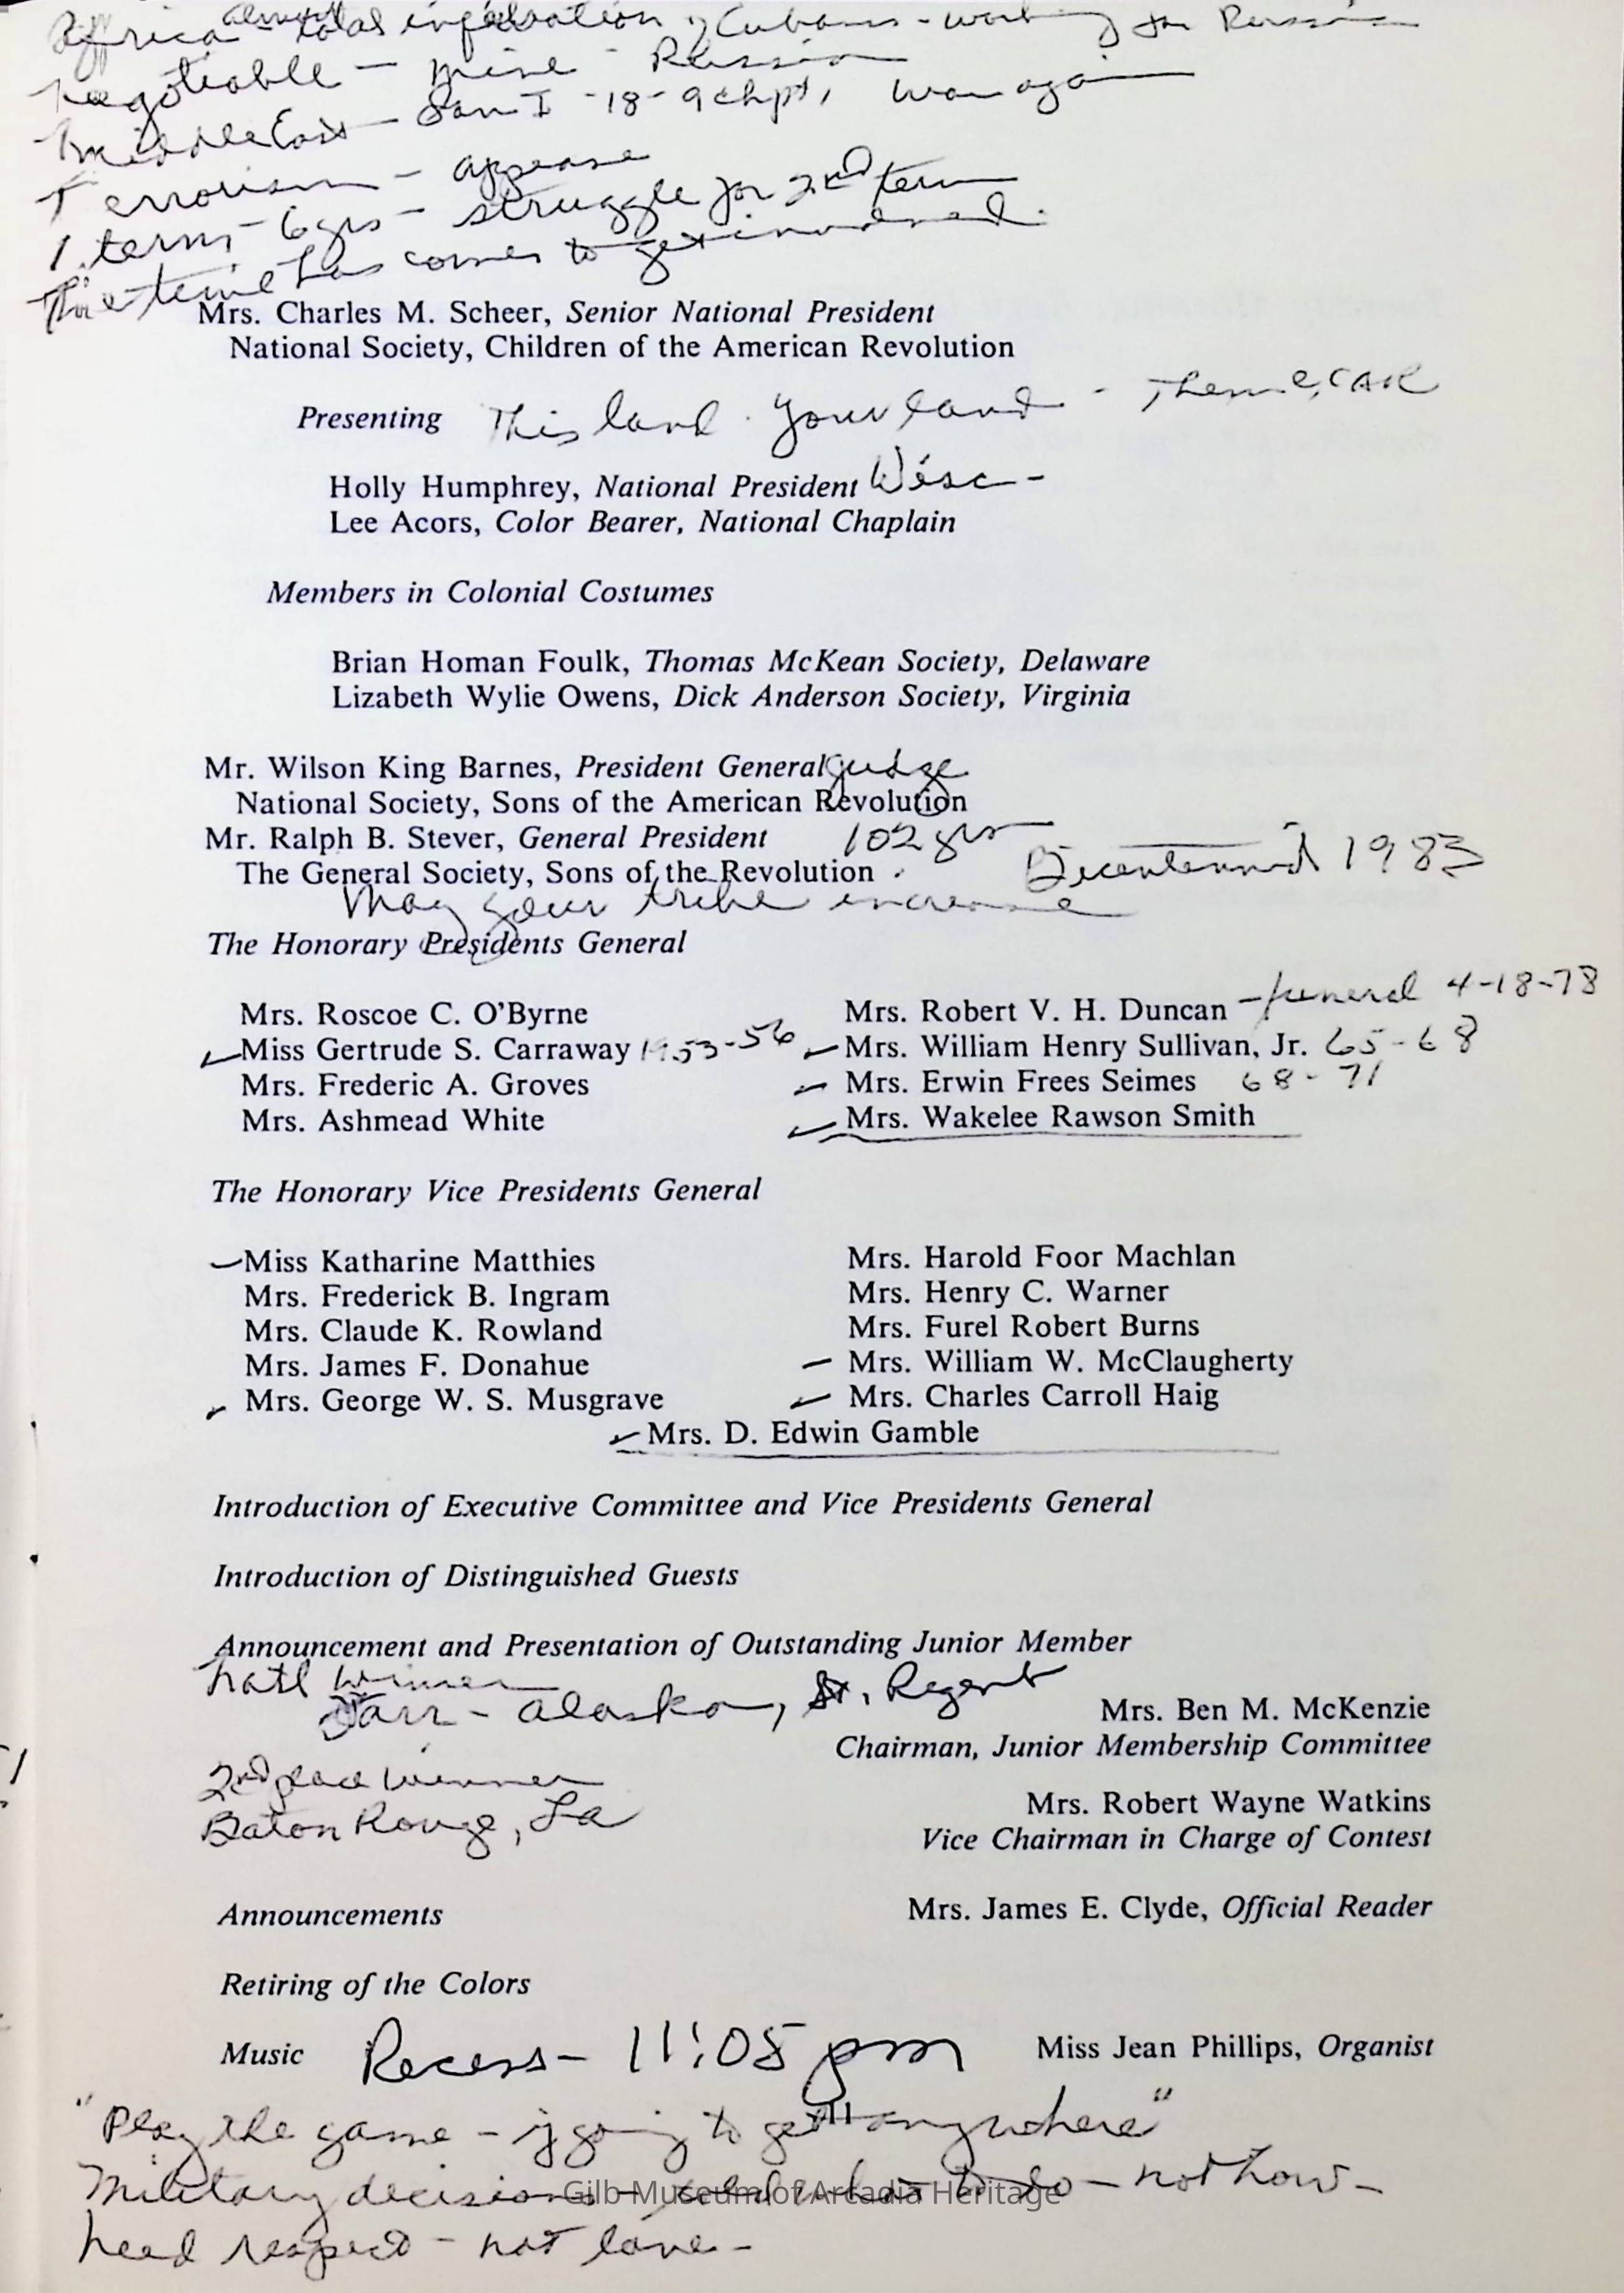 Africa - almost total infiltration of Cubans - working for Russia
Negotiable - mine Russia
Middle East - Sam I - 18 - 9 chpt, war again
Terrorism - appease
1. term - 6 yrs - struggle for 2nd term
The time has comes to get involved.
Mrs. Charles M. Scheer, Senior National President
National Society, Children of the American Revolution
Presenting This land. Your land - Theme, CAR
Holly Humphrey, National President Wisc -
Lee Acors, Color Bearer, National Chaplain
Members in Colonial Costumes
Brian Homan Foulk, Thomas McKean Society, Delaware
Lizabeth Wylie Owens, Dick Anderson Society, Virginia
Mr. Wilson King Barnes, President General Judge
National Society, Sons of the American Revolution
Mr. Ralph B. Stever, General President 102 yrs
The General Society, Sons of the Revolution . Bicentennial 1983
May your tribe increase
The Honorary Presidents General
Mrs. Roscoe C. O'Byrne
Miss Gertrude S. Carraway 1953-56
Mrs. Frederic A. Groves
Mrs. Ashmead White
Mrs. Robert V. H. Duncan - funeral 4-18-78
Mrs. William Henry Sullivan, Jr. 65-68
Mrs. Erwin Frees Seimes 68-71
Mrs. Wakelee Rawson Smith
The Honorary Vice Presidents General
Miss Katharine Matthies
Mrs. Frederick B. Ingram
Mrs. Claude K. Rowland
Mrs. James F. Donahue
Mrs. George W. S. Musgrave
Mrs. Harold Foor Machlan
Mrs. Henry C. Warner
Mrs. Furel Robert Burns
Mrs. William W. McClaugherty
Mrs. Charles Carroll Haig
Mrs. D. Edwin Gamble
Introduction of Executive Committee and Vice Presidents General
Introduction of Distinguished Guests
Announcement and Presentation of Outstanding Junior Member
Natl Winner
Alaska, St. Regent
Mrs. Ben M. McKenzie
Chairman, Junior Membership Committee
2nd place winner
Baton Rouge, La
Mrs. Robert Wayne Watkins
Vice Chairman in Charge of Contest
Announcements Mrs. James E. Clyde, Official Reader
Retiring of the Colors
Music Recess - 11:05 pm Miss Jean Phillips, Organist
11
"Play the game - if going to get anywhere"
Military decisions - what to do - not how -
need respect - not love -
Gilb Museum of Arcadia Heritage